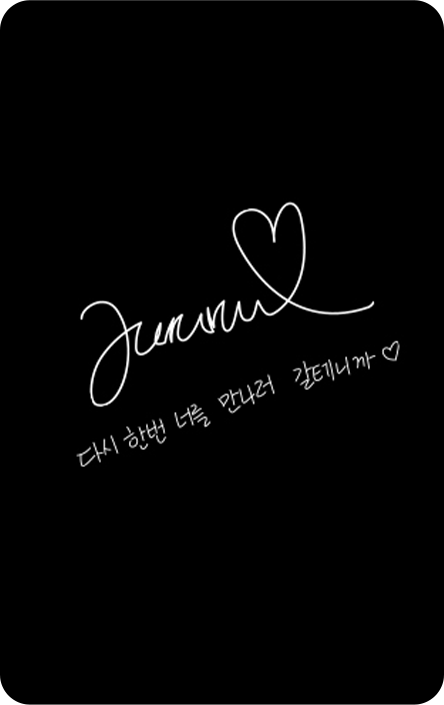 Jururu
다시 한번 너를 만나러 갈테니까 ♡